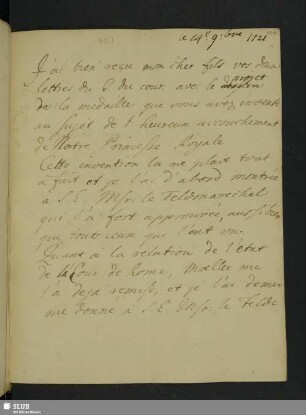 le 14e 9.bre 1721
J'ai bien reçu mon cher fils vos deux
lettres du 6. du cour. avec le projet
de la medaille que vous avez inventé
au sujet de l'heureux accouchement
de Notre Princesse Royale
Cette invention la me plait tout
à fait et je l'ai d'abord montrée
à S. E. Mgr. le Feldmarechal
qui l'a fort approuvée, aussi bien
que touts ceux qui l'ont vu.
Quant à la relation de l'état
de la Cour de Rome, me
l'a deja remise, et je l'ai
me donné à S. E. Mgr. le Feld=
SLUB